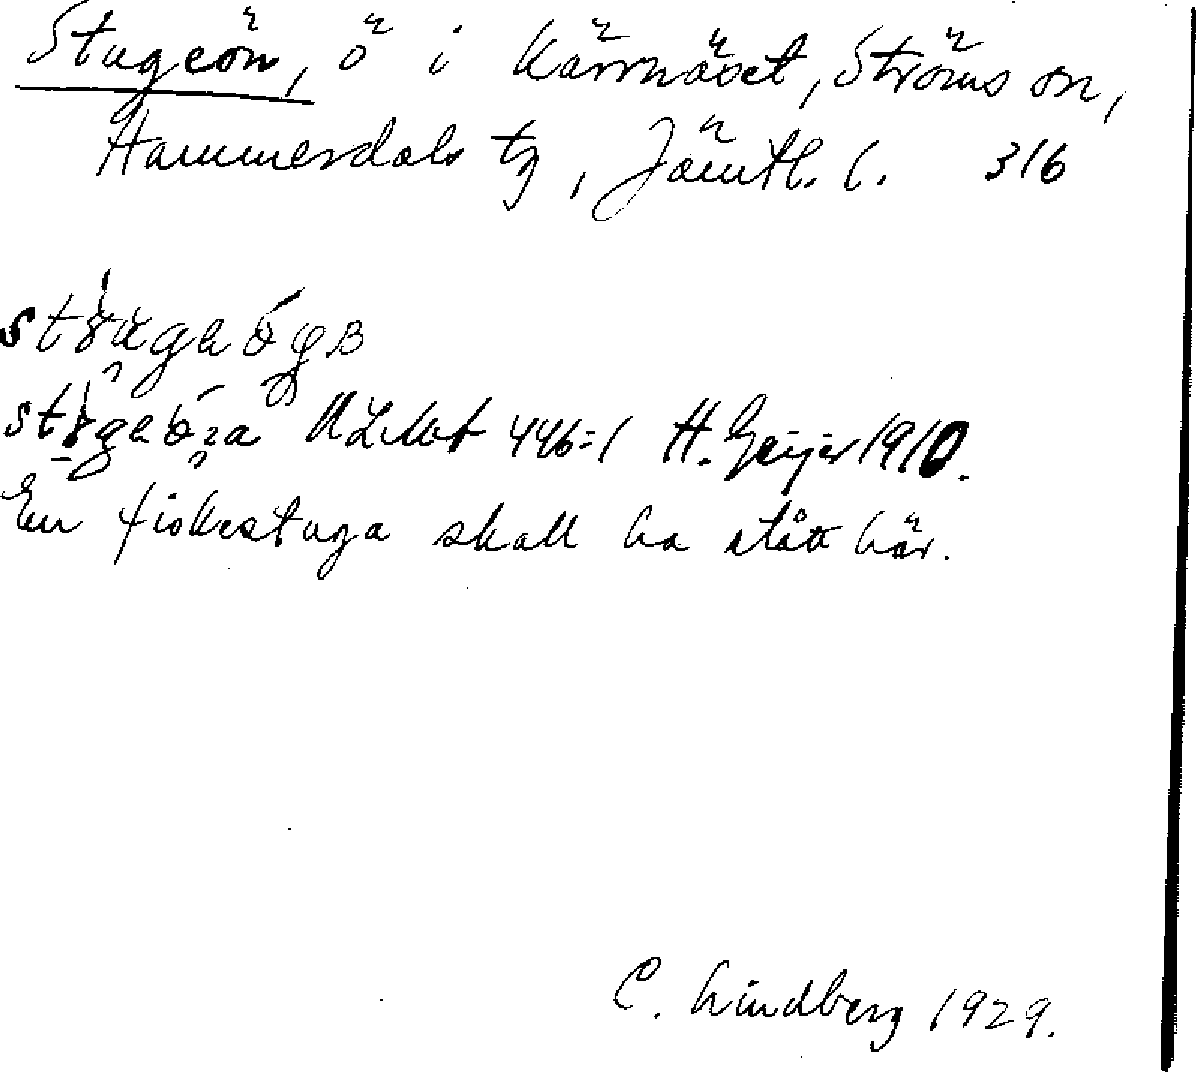 Stugeön, ö i Kärrnäset, Ströms sn,
Hammerdals tg, Jämtl. l. 316
446:1 H. Geijer 1910.
En fiskestuga skall ha stått här.
C. Lindberg 1929.